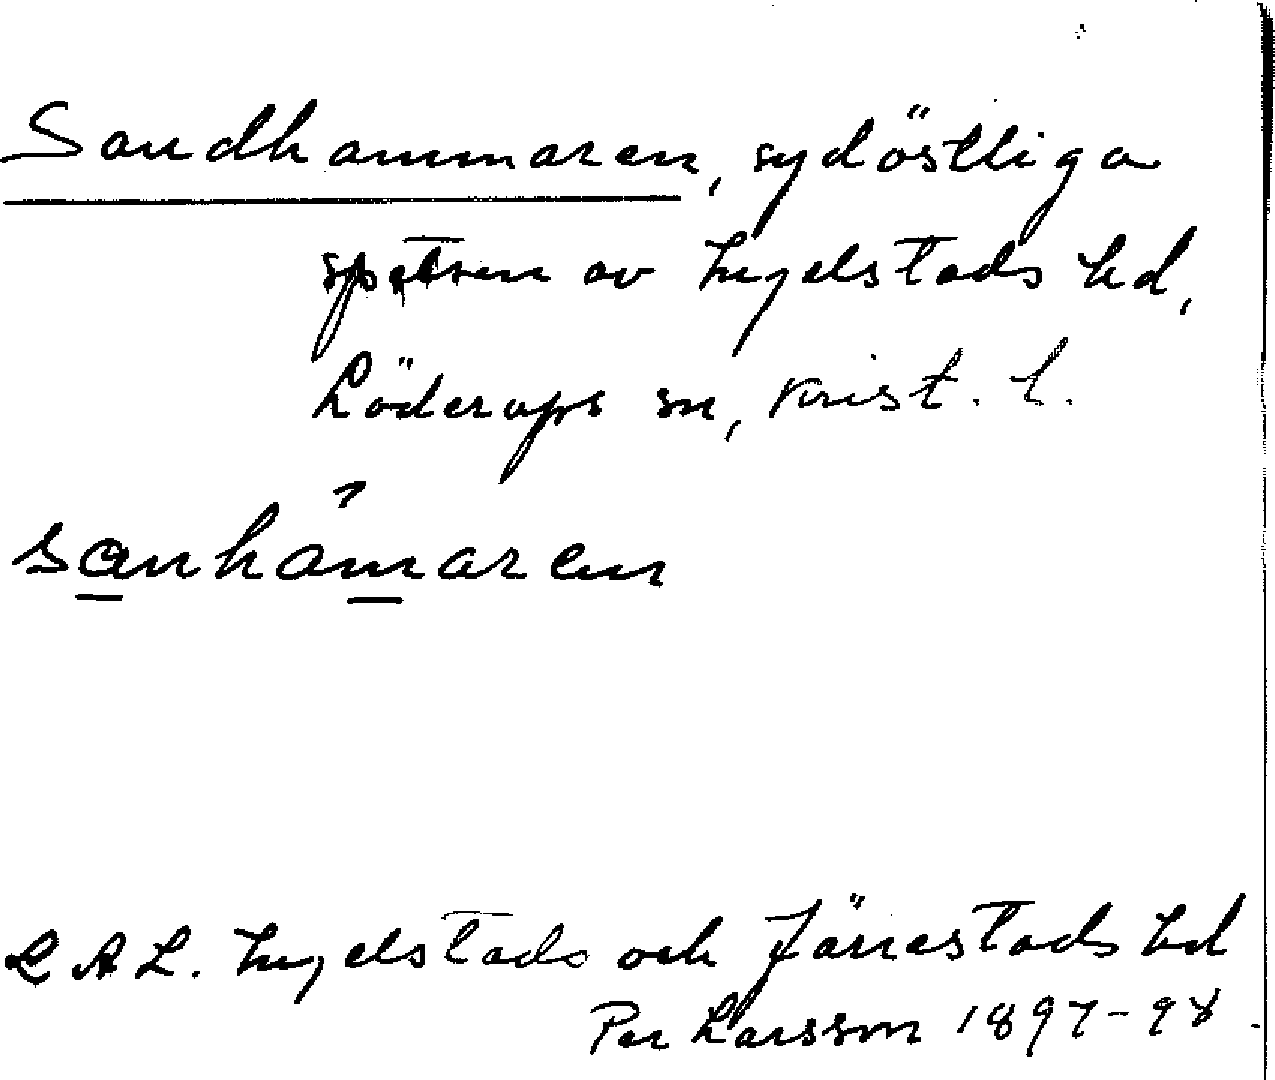 Sandhammaren, sydöstliga
spetsen av Ingelstads hd,
Löderups sn, Krist. l.
sanhamaren
LAL. Ingelstads och Järrestads hd
Per Larsson 1897-98.